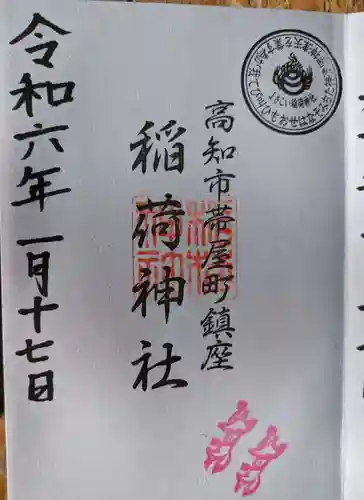 高知市帯屋町鎮座
稲荷神社
令和六年一月十七日